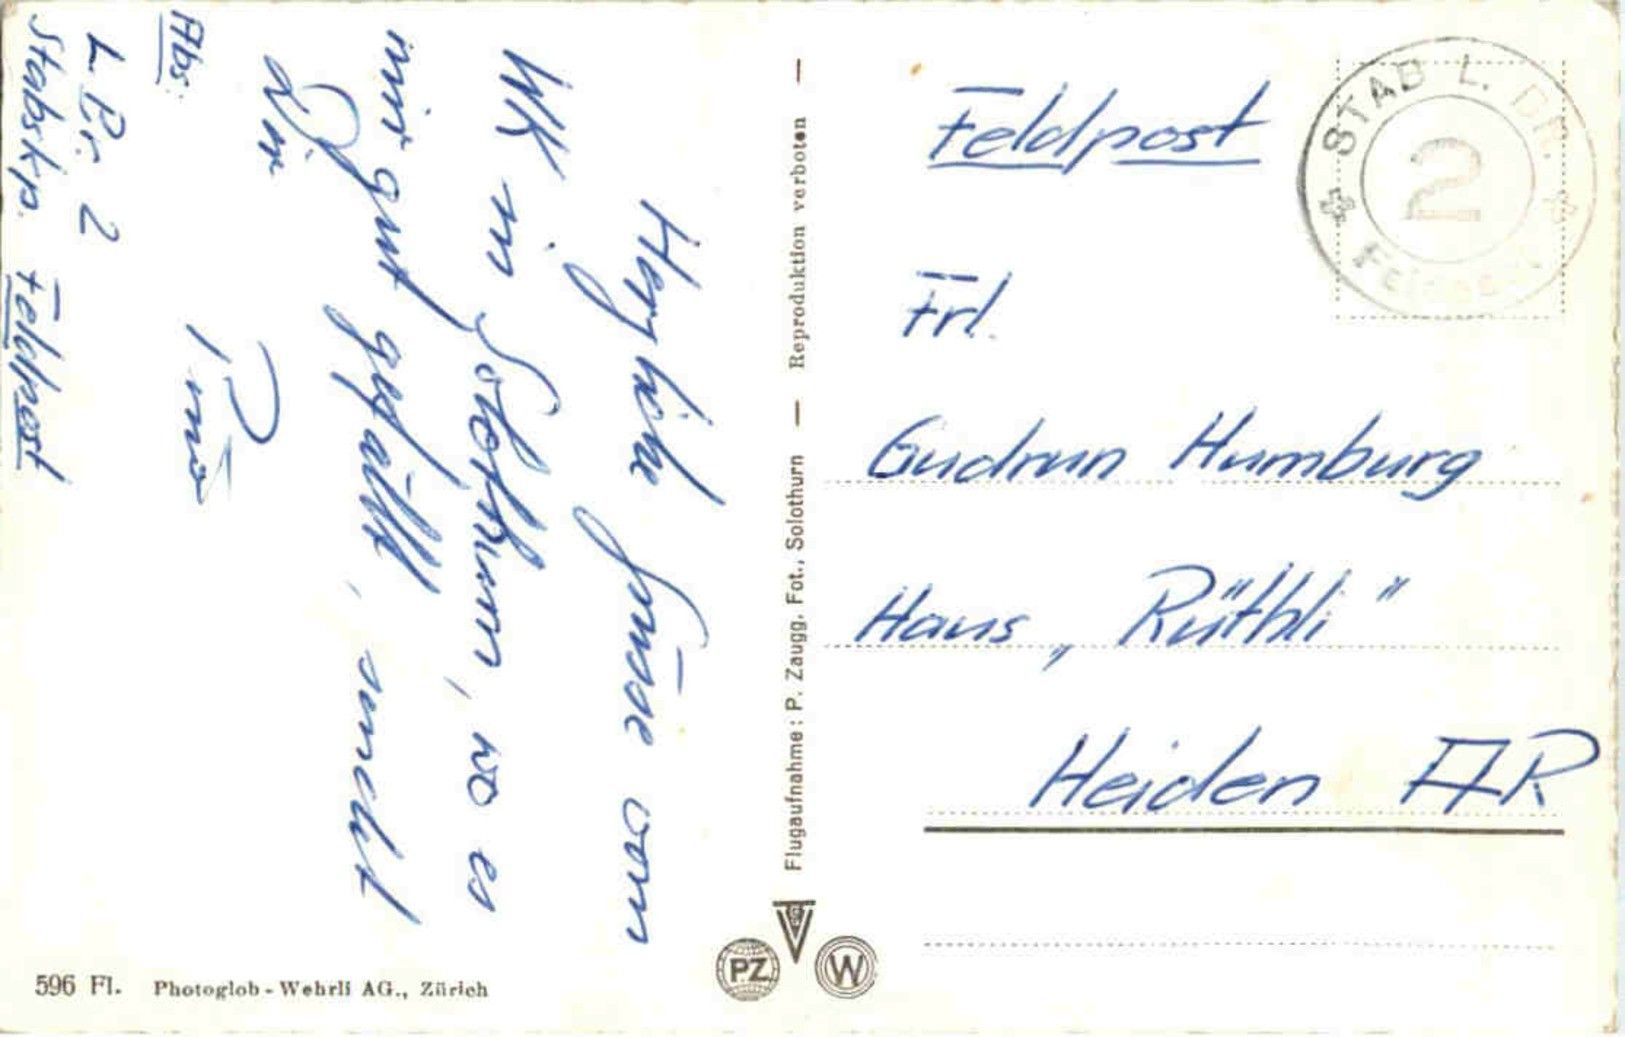 Herzliche Grüsse vom
WK in Solothurn, wo es
mir gut gefällt, sendet
Dir
Abs:
L Br. 2
Stabskp. Feldpost
Flugaufnahme: P. Zaugg, Fot., Solothurn — Reproduktion verboten —
Feldpost
STAB L. BR.
2
Feldpost
Frl.
Gudrun Humburg
Haus „Rüthli"
Heiden AR
596 Fl. Photoglob-Wehrli AG., Zürich
PZ
W